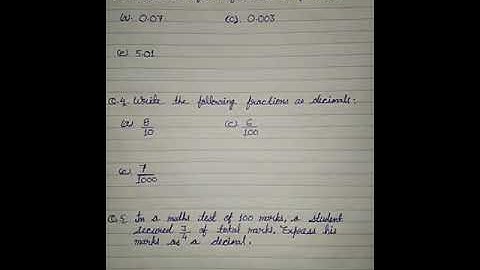 (a) 0.07 (c) 0.003
(e) 5.01
Q.4. Write the following fractions as decimals:
(a) 8/10 (c) 6/100
(e) 7/1000
Q.5 In a maths test of 100 marks, a student
secured 3/4 of total marks. Express his
marks as a decimal.